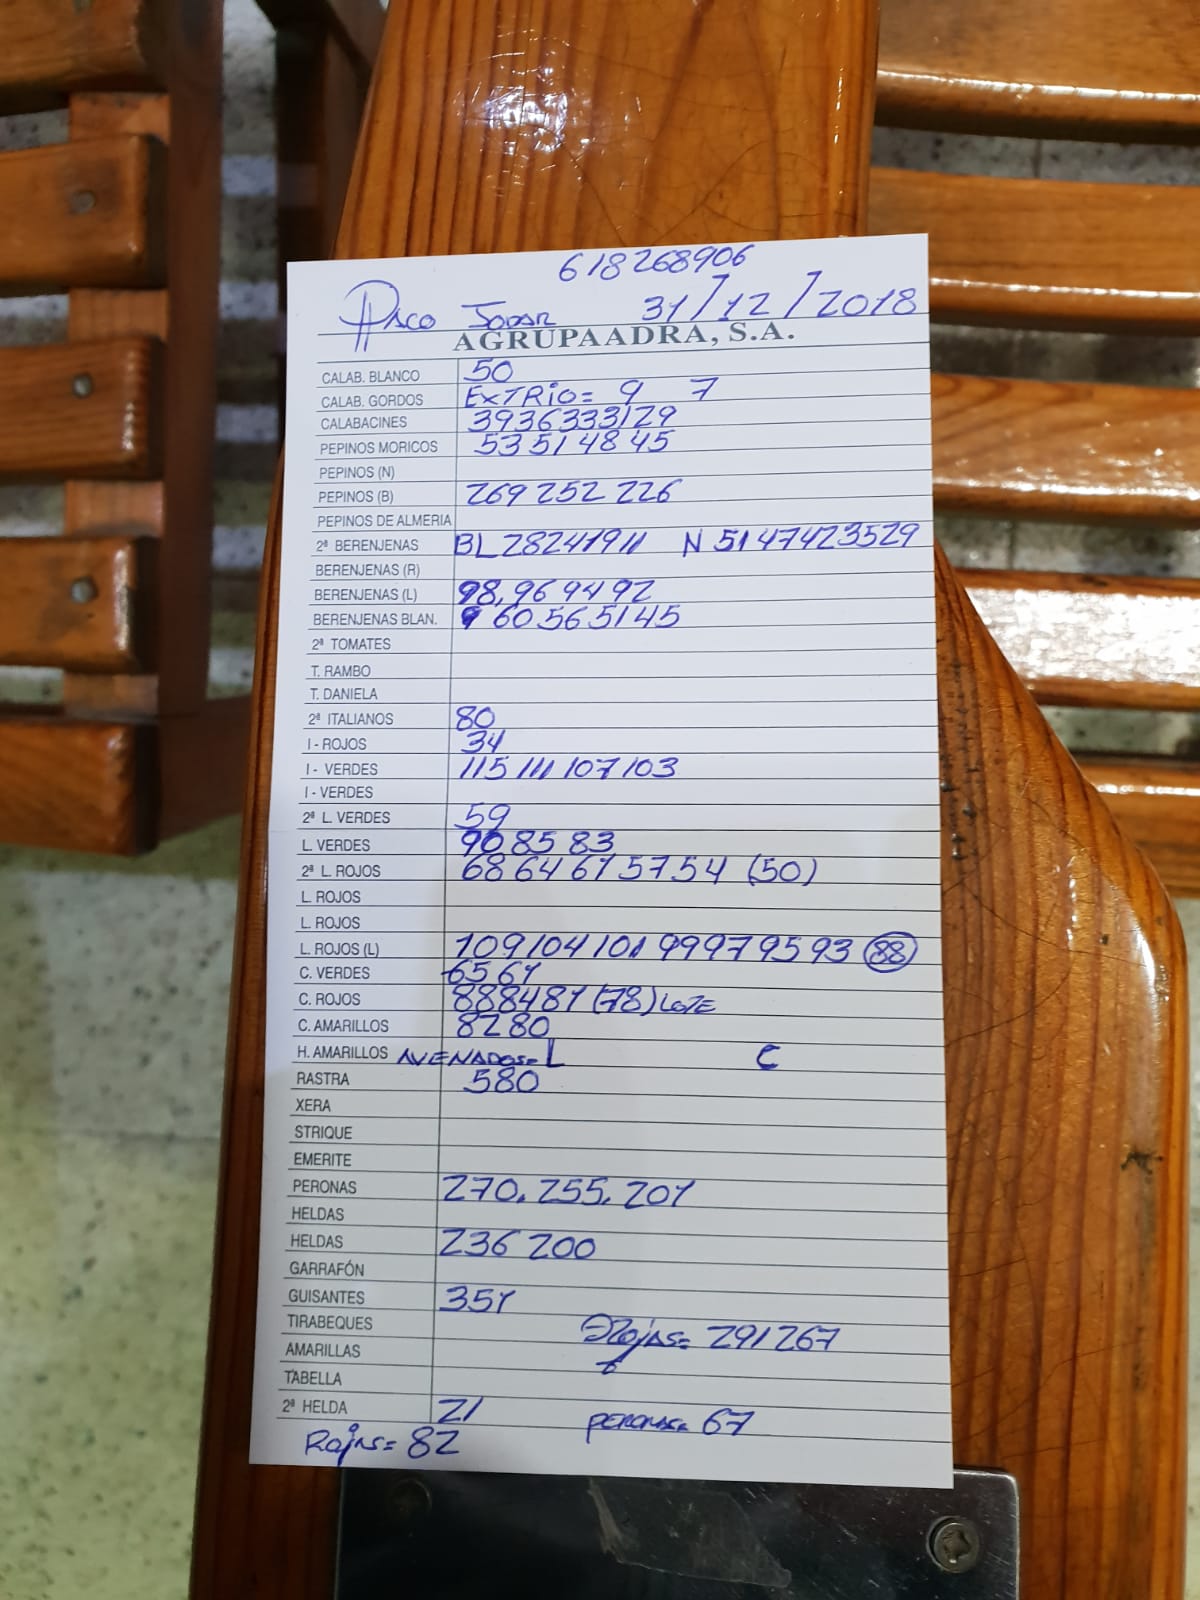 618268906
Paco Jodar 31/12/2018
AGRUPAADRA, S.A.
CALAB. BLANCO 50
CALAB. GORDOS EXTRIO= 9 7
CALABACINES 39 36 33 31 29
PEPINOS MORICOS 53 51 48 45
PEPINOS (N)
PEPINOS (B) 269 252 226
PEPINOS DE ALMERIA
2ª BERENJENAS BL 28 24 19 11 N 51 47 42 35 29
BERENJENAS (R)
BERENJENAS (L) 98, 96 94 92
BERENJENAS BLAN. 60 56 51 45
2ª TOMATES
T. RAMBO
T. DANIELA
2ª ITALIANOS 80
I - ROJOS 34
I - VERDES 115 111 107 103
I - VERDES
2ª L. VERDES 59
L. VERDES 90 85 83
2ª L. ROJOS 68 64 61 57 54 (50)
L. ROJOS
L. ROJOS
L. ROJOS (L) 109 104 101 99 97 95 93 88
C. VERDES 65 61
C. ROJOS 88 84 81 (78) LOTE
C. AMARILLOS 82 80
H. AMARILLOS AVENADOS= L C
RASTRA 580
XERA
STRIQUE
EMERITE
PERONAS 270. 255. 201
HELDAS
HELDAS 236 200
GARRAFÓN
GUISANTES 351
TIRABEQUES Rojas= 291 267
AMARILLAS
TABELLA
2ª HELDA 21 PERONAS= 67
Rojas= 82